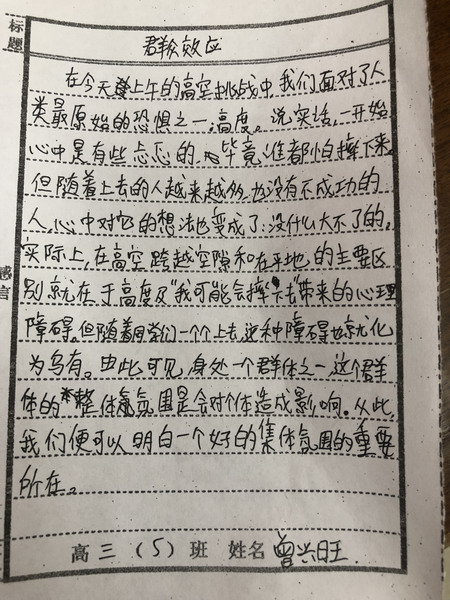 标题
群众效应
在今天上午的高空挑战中,我们面对了人
类最原始的恐惧之一:高度。说实话,一开始,
心中是有些忐忑的,毕竟谁都怕摔下来
但随着上去的人越来越多,也没有不成功的
人,心中对它的想法也变成了:没什么大不了的。
实际上,在高空跨越空隙和在平地的主要区
别就在于高度及“我可能会摔下去”带来的心理
障碍。但随着同学们一个个上去,这种障碍也就化
为乌有。由此可见,身处一个群体之一,这个群
体的整体氛围是会对个体造成影响。从此,
我们便可以明白一个好的集体氛围的重要
所在。
感言
高三(5)班 姓名 曾兴旺